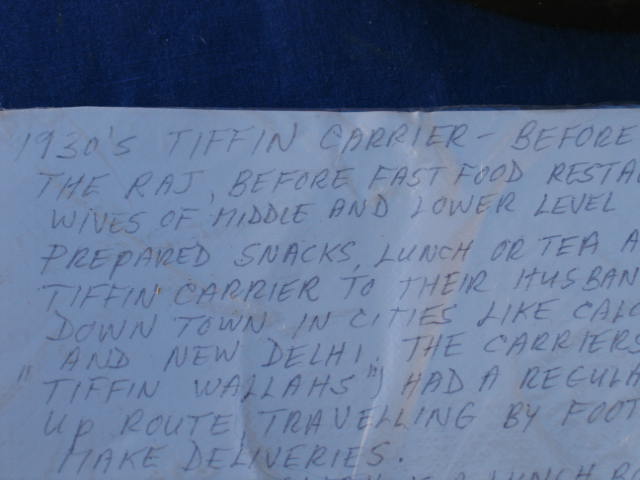 1930's TIFFIN CARRIER - BEFORE
THE RAJ, BEFORE FAST FOOD RESTAU
WIVES OF MIDDLE AND LOWER LEVEL
PREPARED SNACKS, LUNCH OR TEA A
TIFFIN CARRIER TO THEIR HUSBAN
DOWN TOWN IN CITIES LIKE CALC
AND NEW DELHI. THE CARRIERS
"TIFFIN WALLAHS") HAD A REGULA
UP ROUTE, TRAVELLING BY FOOT
MAKE DELIVERIES.
IS A LUNCH BO